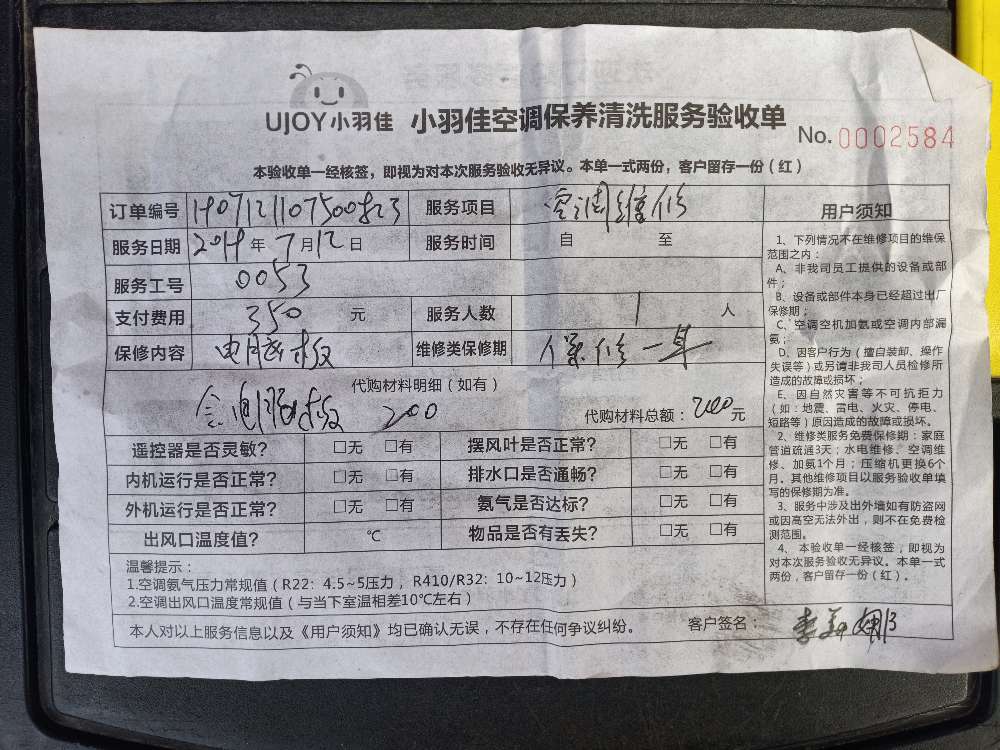 UJOY小羽佳 小羽佳空调保养清洗服务验收单
No. 0002584
本验收单一经核签，即视为对本次服务验收无异议。本单一式两份，客户留存一份（红）
订单编号 服务项目 空调维修
服务日期 2019年7月12日 服务时间 自 至
服务工号 0053
支付费用 350 元 服务人数 1 人
保修内容 电脑板 维修类保修期 保修一年
代购材料明细（如有）
电脑板 200 代购材料总额：200元
遥控器是否灵敏？ □无 □有 摆风叶是否正常？ □无 □有
内机运行是否正常？ □无 □有 排水口是否通畅？ □无 □有
外机运行是否正常？ □无 □有 氨气是否达标？ □无 □有
出风口温度值？ ℃ 物品是否有丢失？ □无 □有
温馨提示：
1.空调氨气压力常规值（R22：4.5~5压力，R410/R32：10~12压力）
2.空调出风口温度常规值（与当下室温相差10℃左右）
本人对以上服务信息以及《用户须知》均已确认无误，不存在任何争议纠纷。 客户签名：
用户须知
1、下列情况不在维修项目的维保
范围之内：
A、非我司员工提供的设备或部
件；
B、设备或部件本身已经超过出厂
保修期；
C、空调空机加氨或空调内部漏
氨；
D、因客户行为（擅自装卸、操作
失误等）或另请非我司人员检修所
造成的故障或损坏；
E、因自然灾害等不可抗拒力
（如：地震、雷电、火灾、停电、
短路等）原因造成的故障或损坏。
2、维修类服务免费保修期：家庭
管道疏通3天；水电维修、空调维
修、加氨1个月；压缩机更换6个
月。其他维修项目以服务验收单填
写的保修期为准。
3、服务中涉及出外墙如有防盗网
或因高空无法外出，则不在免费检
测范围。
4、本验收单一经核签，即视为
对本次服务验收无异议。本单一式
两份，客户留存一份（红）。